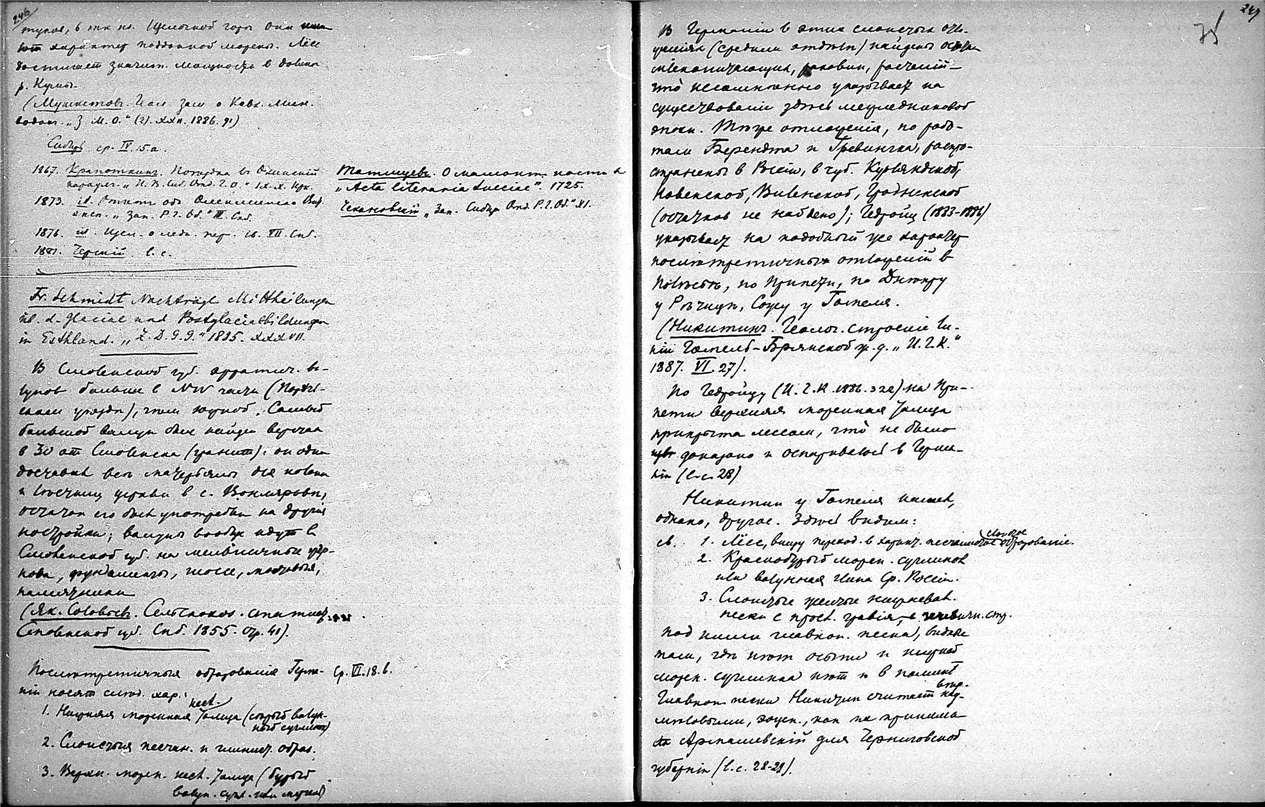 246
тупов, в тк на. Щелочной горы они
характер поддонной морены. Лёсс
достигает значит. мощности в долине
р. Кумы.
(Мушкетовъ. Геол. зам. о Кавк. Мин.
водах. „З. М. О." (2). XXII. 1886. 91)
Сибирь ср. IV. 5а.
1867. Крапоткинъ. Поездка въ Окинский
караул. „И. В. Сиб. Отд. Г. О." IX-X. Ирк.
1873. id. Отчет об Олекминско Вит.
эксп. „Зап. Р. Г. Об." III. Спб.
1876. id. Иссл. о ледн. пер. ib. VII. Спб.
1887. Черский l. c.
Татищевъ. О мамонт. кости
„Acta literaria Sueciae". 1725.
Чекановский „Зап. Сибир Отд. Р. Г. Об." XI.
Fr. Schmidt Nachträge Mittheilungen
üb. d. Glacial und Postglacialbildungen
in Esthland. „Z. D. G. G." 1885. XXXVII.
В Смоленской губ. эрратич. ва-
лунов больше в NW части (
уезды), чем южной. Самый
большой валун был найден верстах
в 30 от Смоленска (гранит): он один
доставил весь матерьялъ для
и лестниц церкви в с. Вонлярово,
остаток его был употреблен на другия
постройки; валуны вообще идут в
Смоленской губ. на мельничные жер-
нова, фундаменты, шоссе, мостовыя,
памятники
(Як. Соловьевъ. Сельскохоз. статист.
Смоленской губ. Спб. 1855. стр. 41).
Послетретичныя образования Герма- Ср. VI. 18. б.
нии носят след. хар.:
1. Нижняя моренная несл. толща (серый валун-
ный суглинок)
2. Слоистыя песчан. и глинист. образ.
3. Верхн. морен. несл. толща (бурый
валун. сугл. или глина)
247
В Германии в этих слоистых обра-
зованиях (средних отдѣл) найдены остатки
млекопитающих, раковин, растений —
что несомненно указывает на
существование здесь междуледниковой
эпохи. Те же отложения, по рабо-
там Берендта и Гревингка, распро-
странены в России, в губ. Курляндской,
Ковенской, Виленской, Гродненской
(остатков не найдено); Гедройц (1883-1886)
указывает на подобный же характер
послетретичных отложений в
Полѣсьѣ, по Припети, по Днепру
у Рѣчицы, Сожу у Гомеля.
(Никитинъ. Геолог. строение ли-
нии Гомель-Брянской ж. д. „И. Г. К."
1887. VI. 27).
По Гедройцу (И. Г. К. 1886. 322) на При-
пети верхняя моренная толща
прикрыта лёссом, что не было
доказано и оспаривается в Герма-
нии (l. c. 28)
Никитин у Гомеля нашел,
однако, другое. Здесь видим:
св. 1. Лёсс, внизу переход. в характ. песчаное слоистое образование.
2. Краснобурый морен. суглинок
или валунная глина Ср. России.
3. Слоистые желтые кварцеват.
пески с просл. гравия
под ними глаукон. пески,
там, где нет осыпи и нижней
морен. суглинка нет и в помине
Глаукон. пески Никитин считает
эоцен., как их признала
Армашевский для Черниговской
губернии (l. c. 28-29).